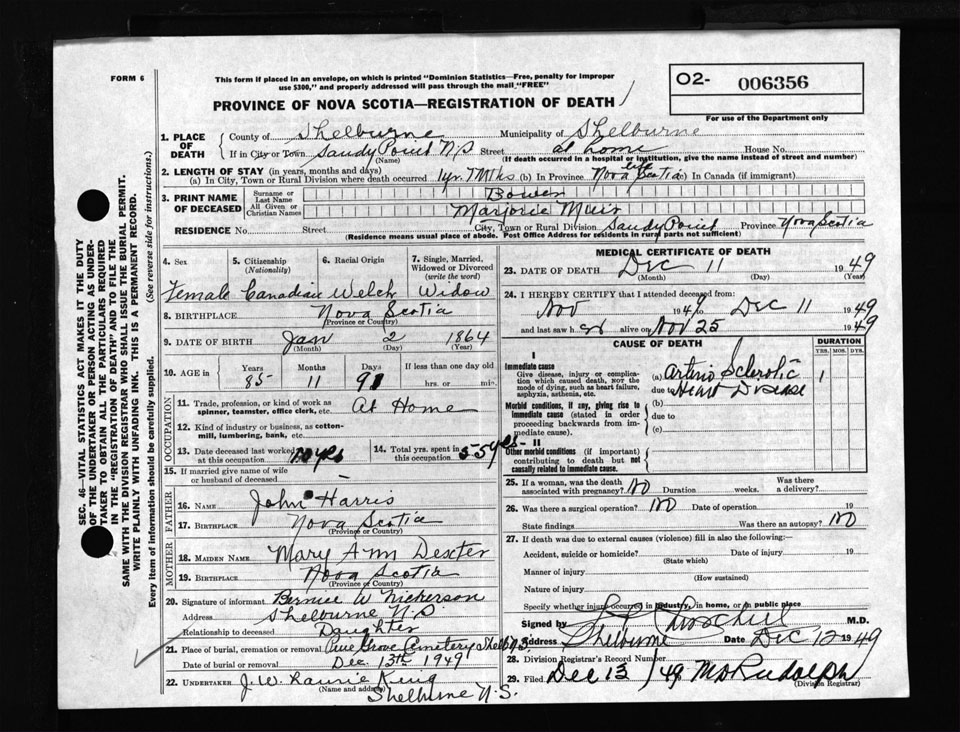 FORM 6
This form if placed in an envelope, on which is printed "Dominion Statistics—Free, penalty for improper
use $300," and properly addressed will pass through the mail "FREE"
O2- 006356
For use of the Department only
PROVINCE OF NOVA SCOTIA—REGISTRATION OF DEATH
SEC. 46—VITAL STATISTICS ACT MAKES IT THE DUTY
OF THE UNDERTAKER OR PERSON ACTING AS UNDER-
TAKER TO OBTAIN ALL THE PARTICULARS REQUIRED
IN THE "REGISTRATION OF DEATH" AND TO FILE THE
SAME WITH THE DIVISION REGISTRAR WHO SHALL ISSUE THE BURIAL PERMIT.
WRITE PLAINLY WITH UNFADING INK. THIS IS A PERMANENT RECORD.
Every item of information should be carefully supplied. (See reverse side for instructions.)
1. PLACE OF DEATH
County of Shelburne Municipality of Shelburne
If in City or Town Sandy Point N.S Street at home House No.
(Name) (If death occurred in a hospital or institution, give the name instead of street and number)
2. LENGTH OF STAY (in years, months and days)
(a) In City, Town or Rural Division where death occurred 1yr. 7 Mths (b) In Province life Nova Scotia (c) In Canada (if immigrant)
3. PRINT NAME OF DECEASED
Surname or Last Name Bower
All Given or Christian Names Marjorie Muir
RESIDENCE No. Street City, Town or Rural Division Sandy Point Province Nova Scotia
(Residence means usual place of abode. Post Office Address for residents in rural parts not sufficient)
4. Sex Female
5. Citizenship (Nationality) Canadian
6. Racial Origin Welch
7. Single, Married, Widowed or Divorced (write the word) Widow
8. BIRTHPLACE Nova Scotia
(Province or Country)
9. DATE OF BIRTH Jan 2 1864
(Month) (Day) (Year)
10. AGE in Years Months Days If less than one day
85 11 9 hrs. or min.
OCCUPATION
11. Trade, profession, or kind of work as
spinner, teamster, office clerk, etc. At Home
12. Kind of industry or business, as cotton-
mill, lumbering, bank, etc.
13. Date deceased last worked at this occupation yrs
14. Total yrs. spent in this occupation 55 yrs
15. If married give name of wife
or husband of deceased
FATHER
16. Name John Harris
17. Birthplace Nova Scotia
(Province or Country)
MOTHER
18. Maiden Name Mary Ann Dexter
19. Birthplace Nova Scotia
(Province or Country)
20. Signature of informant Bernice W Nickerson
Address Shelburne N.S.
Relationship to deceased Daughter
21. Place of burial, cremation or removal Pine Grove Cemetery Shelb N.S.
Date of burial or removal Dec. 13th 1949
22. Undertaker J. W. King
(Name and address) Shelburne N.S.
MEDICAL CERTIFICATE OF DEATH
23. DATE OF DEATH Dec 11 1949
(Month) (Day) (Year)
24. I HEREBY CERTIFY that I attended deceased from:
Nov 194 to Dec 11 1949
and last saw her alive on Nov 25 1949
CAUSE OF DEATH DURATION
YRS. MOS. DYS.
I
Immediate cause
Give disease, injury or compli-
cation which caused death, NOT the
mode of dying, such as heart failure,
asphyxia, asthenia, etc.
(a) Arterio Sclerotic 1
due to Heart Disease
Morbid conditions, if any, giving rise to
immediate cause (stated in order
proceeding backwards from im-
mediate cause).
(b)
due to
(c)
II
Other morbid conditions (if important)
contributing to death but not
causally related to immediate cause.
25. If a woman, was the death Was there
associated with pregnancy? No Duration weeks. a delivery?
26. Was there a surgical operation? No Date of operation 19
State findings Was there an autopsy? No
27. If death was due to external causes (violence) fill in also the following:—
Accident, suicide or homicide? Date of injury 19
(State which)
Manner of injury
(How sustained)
Nature of injury
Specify whether injury occurred in industry, in home, or in public place
Signed by M.D.
Address Shelburne Date Dec 12 1949
28. Division Registrar's Record Number
29. Filed Dec 13 /49 Rudolph
(Division Registrar)